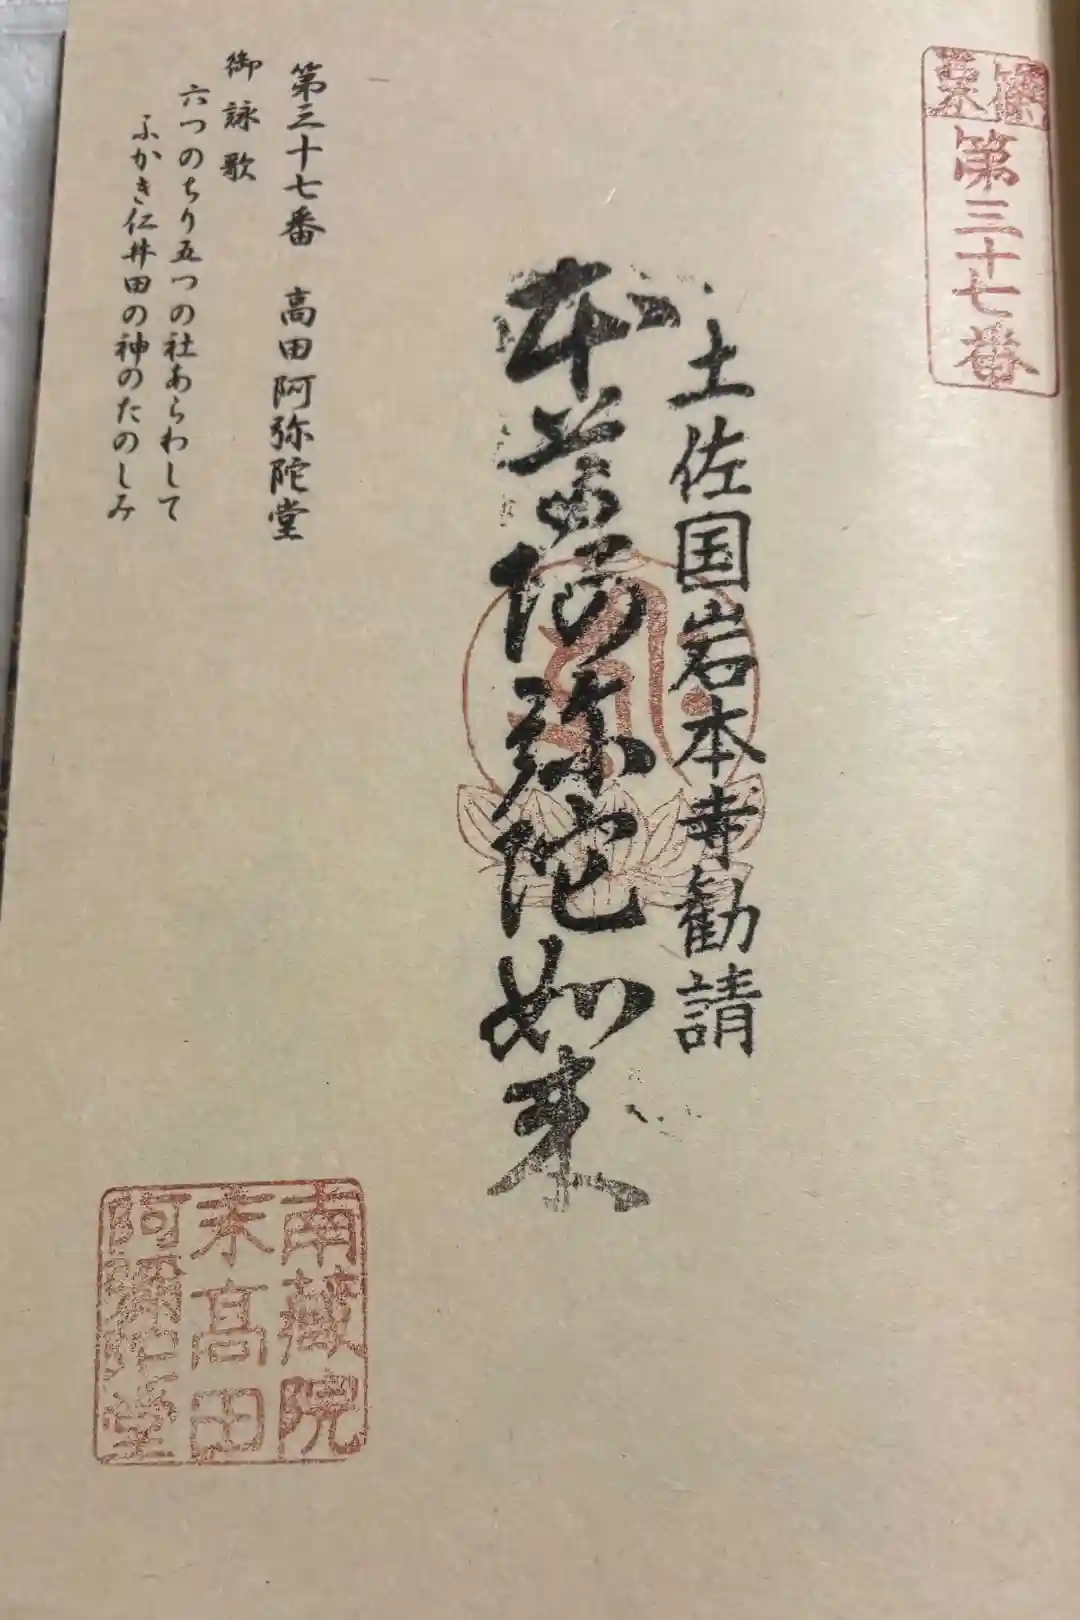 篠栗
第三十七番
土佐国岩本寺勧請
本尊阿弥陀如来
第三十七番 高田阿弥陀堂
御詠歌
六つのちり五つの社あらわして
ふかき仁井田の神のたのしみ
南藏院
末高田
阿彌陀堂